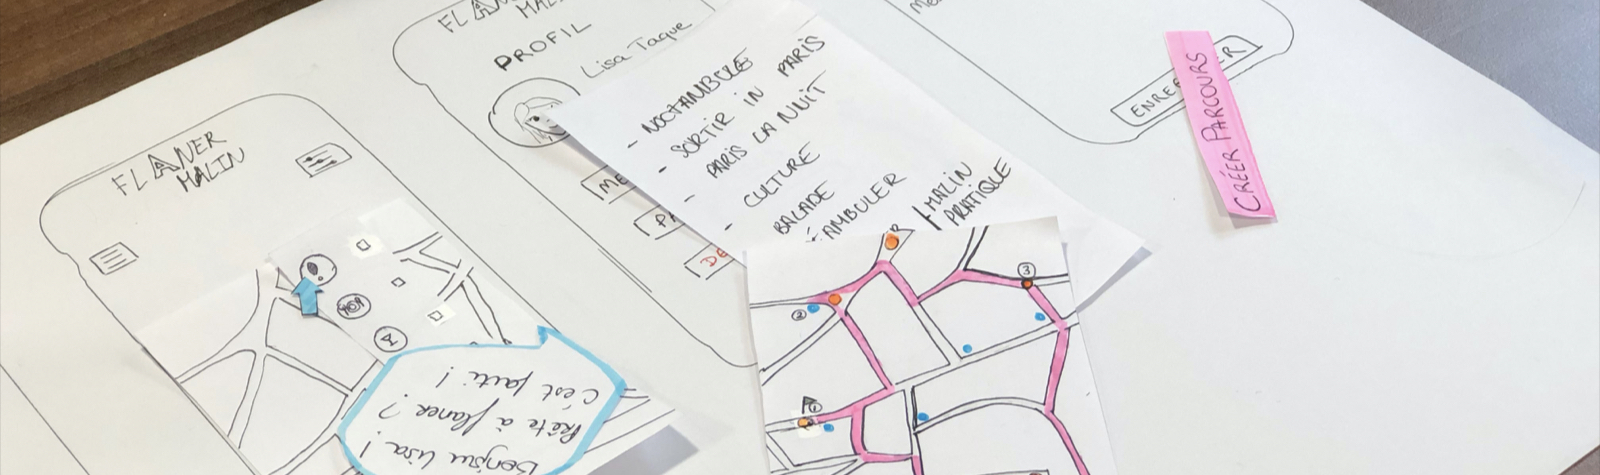 FLANER
MALIN
FLANER
MALIN
PROFIL
Lisa Taque
ME
PA
DE
- NOCTAMBULE
- SORTIR IN PARIS
- PARIS LA NUIT
- CULTURE
BALADE
AMBULER
MALIN
PRATIQUE
ENRE
ER
CRÉER PARCOURS
Bonjour Lisa !
Prête à flaner ?
C'est parti !
1
2
3